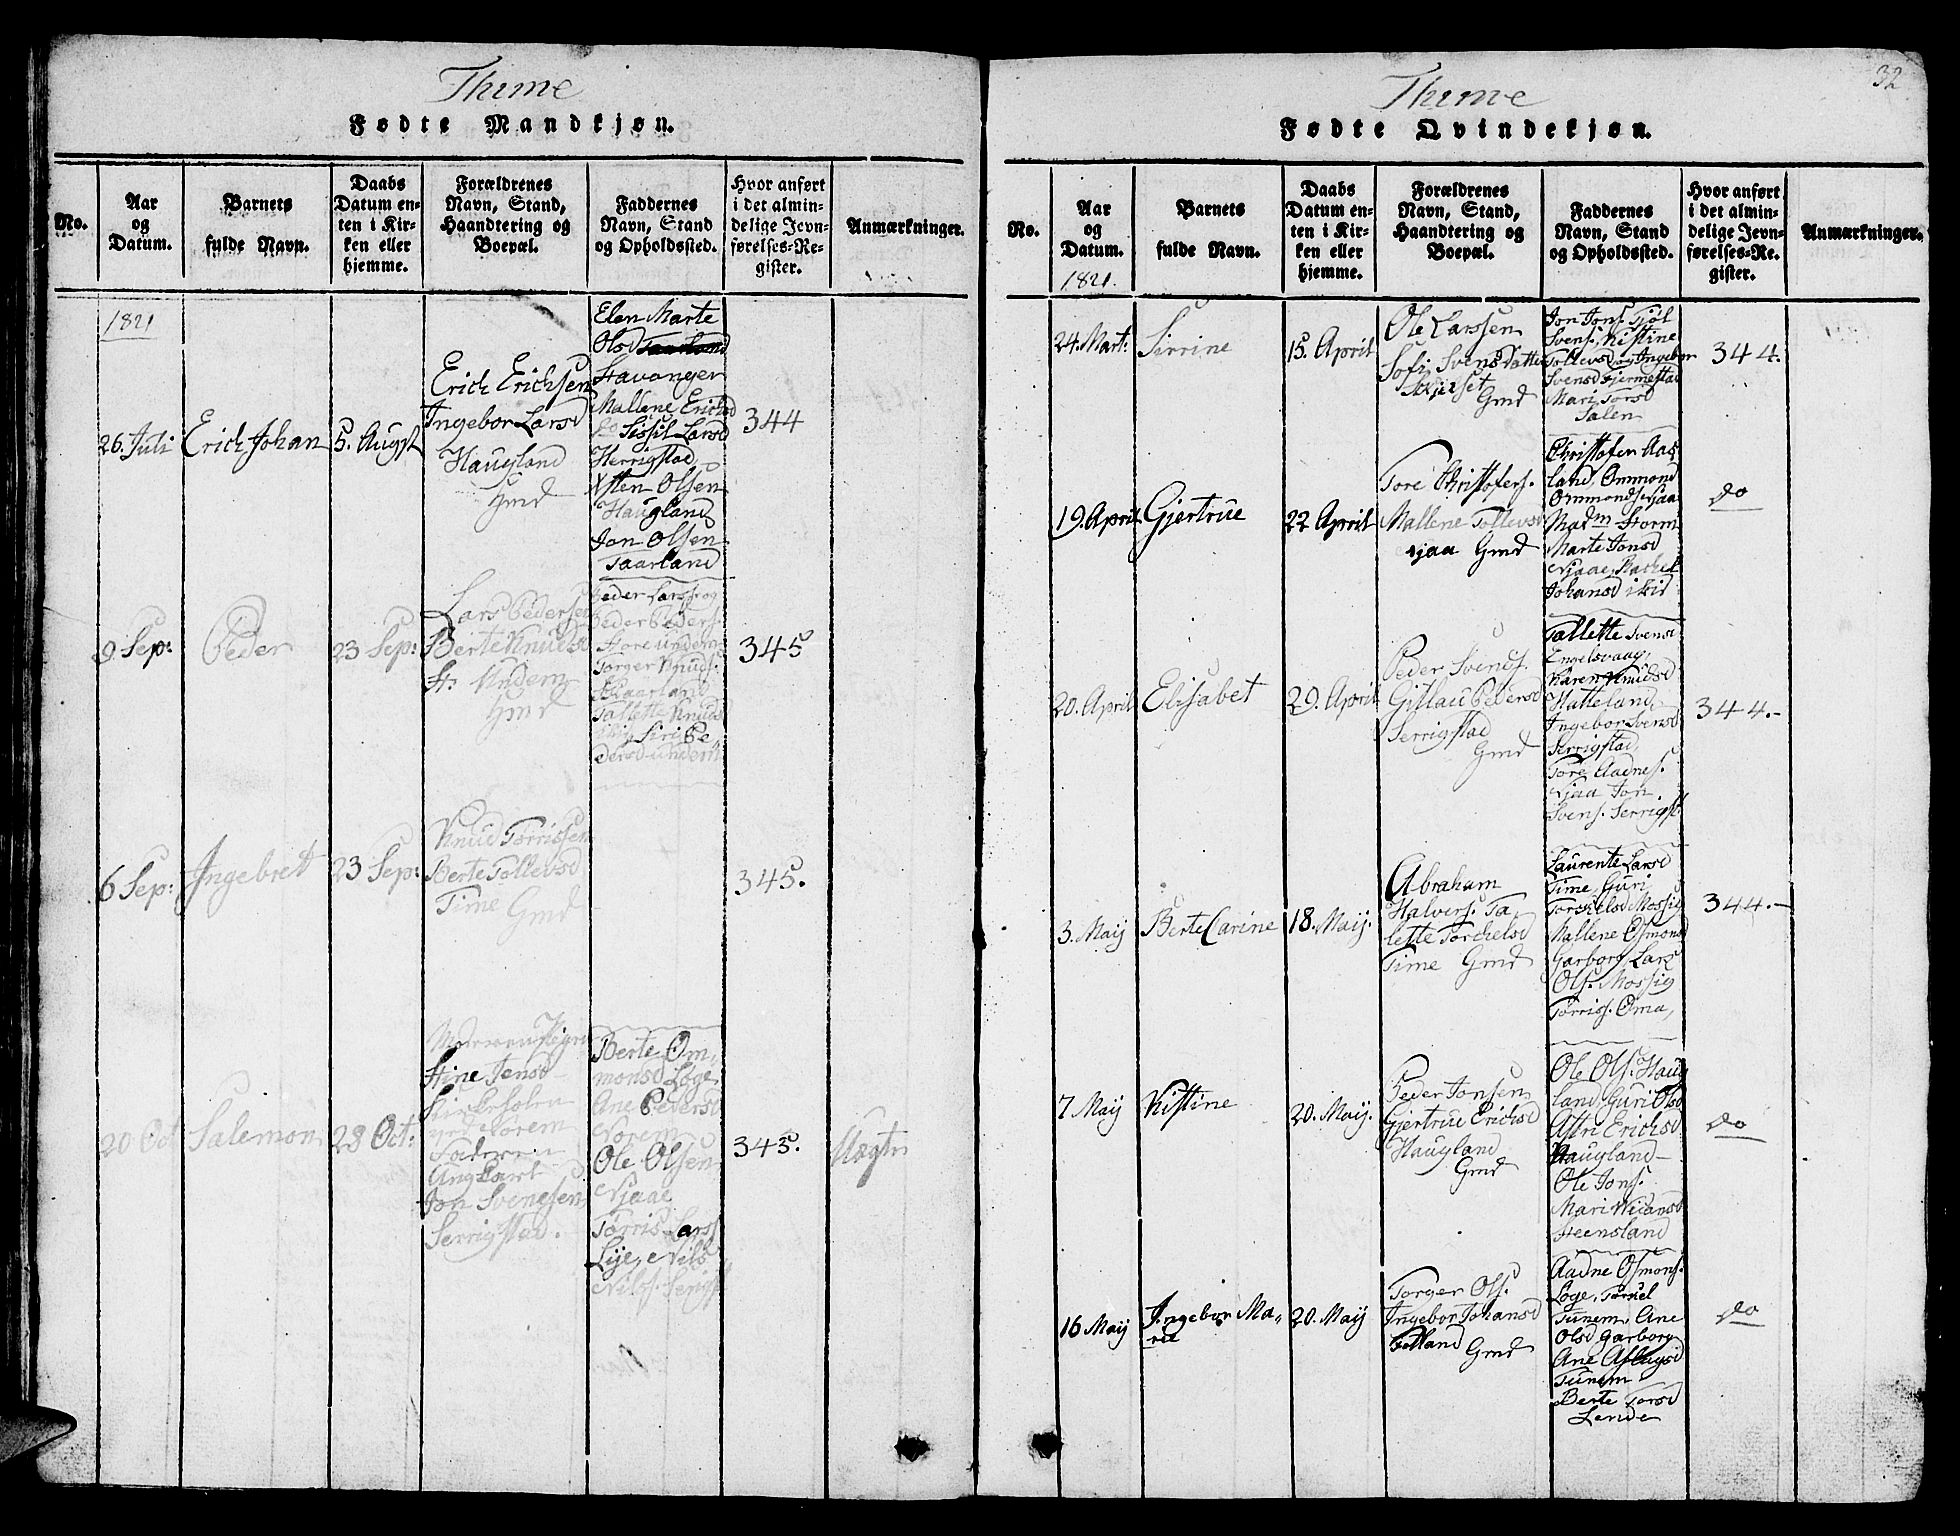 Thime
Fødte Mandkjøn.
No.
Aar
og
Datum.
Barnets
fulde Navn.
Daabs
Datum en-
ten i Kir-
ken eller
hjemme.
Forældrenes
Navn, Stand,
Haandtering og
Boepæl.
Faddernes
Navn, Stand
og Opholdssted.
Hvor anført
i det almin-
delige Jevn-
førelses-Re-
gister.
Anmærkninger.
1821
26. Juli
Erich Johan
5. Augst
Erich Erichsen
Ingebor Larsd
Haugland
Gmd
Elen Marte
Olsd
Stavanger
Mallene Erichsd
do Sissil Larsd
Herrigstad
Asten Olsen
Haugland
Jon Olsen
Taarland
344
9 Sep:
Peder
23 Sep:
Lars Pedersen
Berte Knudsd
St. Undem
Gmd
Peder Larss. og
Peder Peders.
Store Undem
Torger Knuds.
Taarland
Tallette Knudsd
Siri Pe
dersd Undem
345
6 Sep:
Ingebret
23 Sep:
Knud Torrissen
Berte Tollevsd
Time Gmd
345.
20 Oct
Salemon
28 Oct:
Moderen Pigen
Stine Jensd
Norem
Faderen
Ang
Jon Svensen
Serrigstad.
Berte Om
monsd Løge
Ane Pedersd
Norem
Ole Olsen
Njaae
Torris Larss
Lye, Nils
Nilss. Serigst
345.
Uægte
Thime
32
Fødte Qvindekjøn.
No.
Aar
og
Datum.
1821.
Barnets
fulde Navn.
Daabs
Datum en-
ten i Kir-
ken eller
hjemme.
Forældrenes
Navn, Stand,
Haandtering og
Boepæl.
Faddernes
Navn, Stand
og Opholdssted.
Hvor anført
i det almin-
delige Jevn-
førelses-Re-
gister.
Anmærkninger.
24. Mart:
Sirrine
15. April
Ole Larssen
Sofi Svensdatter
Gmd
Jon Jons. Tjøl
Svens. Kistine
Tollevsd og Ingebor
Svensd Fjermestad
Mari Torsd
Salen
344.
19. April
Gjertrue
22 April
Tore Christofers.
Mallene Tollevsd
Njaa Gmd
Christofer Aas
land, Ommond
Ommonds. Njaa
Madm Storm
Marte Jonsd
Njaae, Rachel
Johansd ibid
do
20. April
Elisabet
29. April
Peder Svends.
Gitlau Pedersd
Serrigstad
Gmd
Tallette Svensd
Engelsvaag,
Karen Knudsd
Hatteland,
Ingebor Svensd
Serrigstad,
Tore Aadnes.
Njaa Jon
Svens. Serrigst.
344.-
3. Maij
Berte Carine
18. Maij.
Abraham
Halvers. Ta
lette Torchelsd
Time Gmd
Laurente Larsd
Time, Guri
Torkelsd Mossig
Mallene Osmonsd
Garborg, Lars
Ols. Mossig
Torriss. Oma,
344.-
7 Maij
Kistine
20. Maij.
Peder Jonsen
Gjertrue Erichsd
Haugland
Gmd
Ole Ols. Haug
land, Guri Olsd
Astri Erichsd
Haugland
Ole Jons.
Mari Vidansd
Steensland
do
16 Maij
Ingebor Ma,,
ria
20. Maij
Torger Ols.
Ingebor Johansd
Gmd
Aadne Osmons.
Løge, Torkel
Tunem, Ane
Olsd Garborg
Ane Aslagsd
Tunem
Berte Torsd
Lende
do